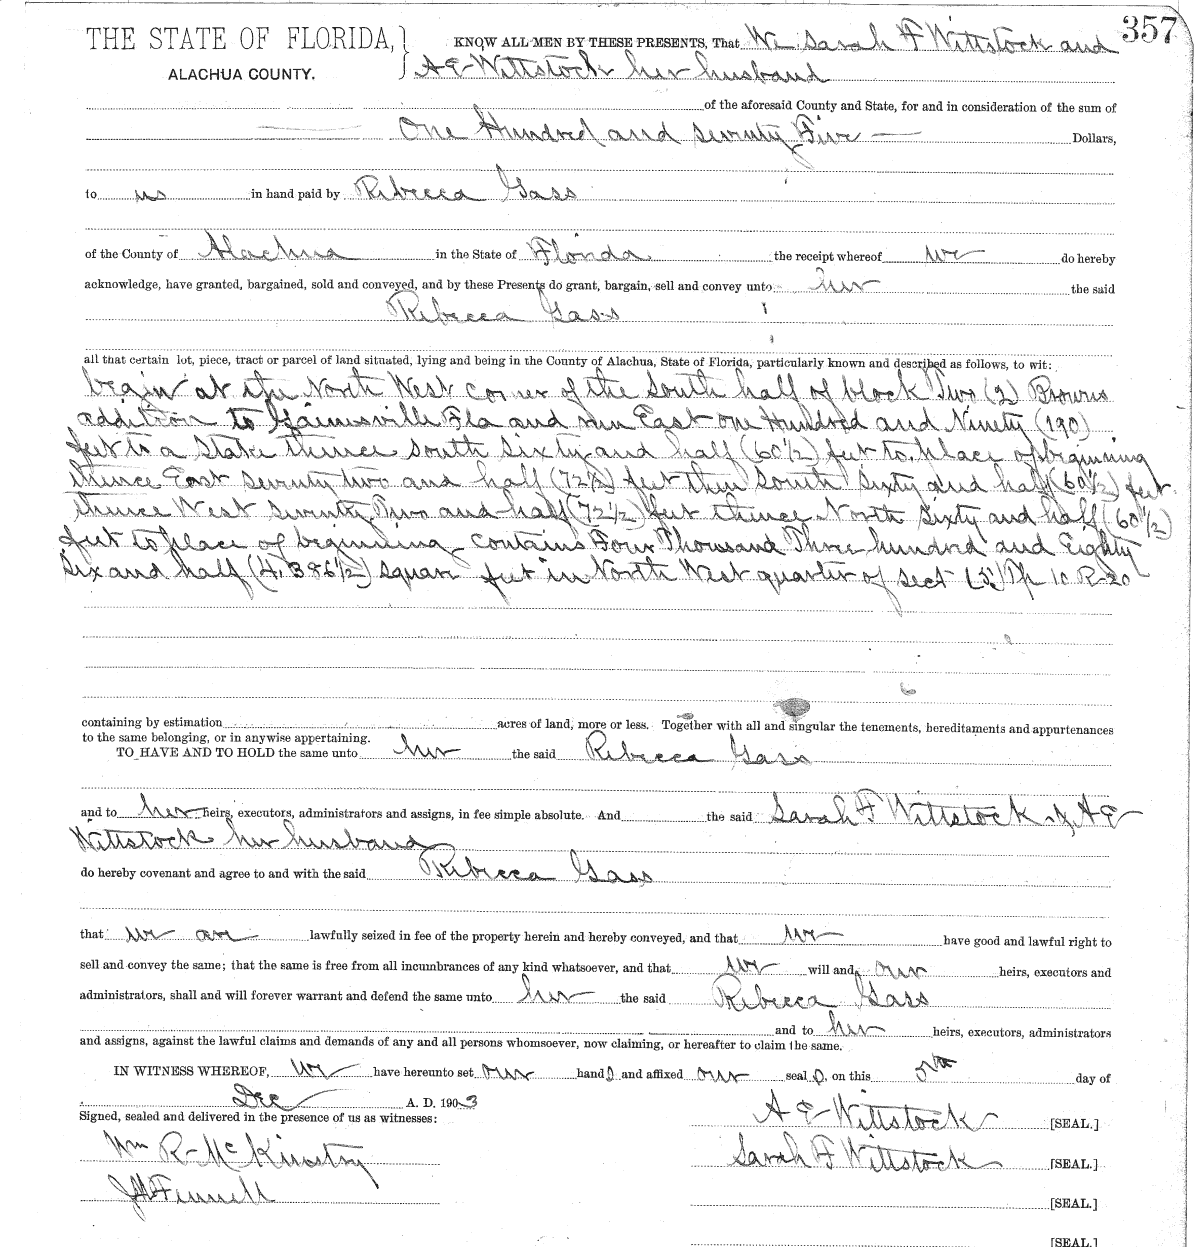 357
THE STATE OF FLORIDA,
ALACHUA COUNTY.
KNOW ALL MEN BY THESE PRESENTS, That We Sarah F Wittstock and
A E Wittstock her husband
of the aforesaid County and State, for and in consideration of the sum of
One Hundred and seventy Five Dollars,
to us in hand paid by Rebecca Gass
of the County of Alachua in the State of Florida the receipt whereof we do hereby
acknowledge, have granted, bargained, sold and conveyed, and by these Presents do grant, bargain, sell and convey unto her the said
Rebecca Gass
all that certain lot, piece, tract or parcel of land situated, lying and being in the County of Alachua, State of Florida, particularly known and described as follows, to wit:
begin at the North West corner of the South half of block Two (2) Browns
addition to Gainesville Fla and run East one Hundred and Ninety (190)
feet to a Stake thence South Sixty and half (60 1/2) feet to place of beginning
thence East seventy two and half (72 1/2) feet then South Sixty and half (60 1/2) feet
thence West seventy Two and half (72 1/2) feet thence North Sixty and half (60 1/2)
feet to place of beginning contains Four Thousand Three hundred and Eighty
Six and half (4,386 1/2) square feet in North West quarter of sect (5) Tp 10 R-20
containing by estimation acres of land, more or less. Together with all and singular the tenements, hereditaments and appurtenances
to the same belonging, or in anywise appertaining.
TO HAVE AND TO HOLD the same unto her the said Rebecca Gass
and to her heirs, executors, administrators and assigns, in fee simple absolute. And the said Sarah F Wittstock & A E
Wittstock her husband
do hereby covenant and agree to and with the said Rebecca Gass
that we are lawfully seized in fee of the property herein and hereby conveyed, and that we have good and lawful right to
sell and convey the same; that the same is free from all incumbrances of any kind whatsoever, and that we will and our heirs, executors and
administrators, shall and will forever warrant and defend the same unto her the said Rebecca Gass
and to her heirs, executors, administrators
and assigns, against the lawful claims and demands of any and all persons whomsoever, now claiming, or hereafter to claim the same.
IN WITNESS WHEREOF, we have hereunto set our hands and affixed our seals, on this 5th day of
Dec A. D. 1903
Signed, sealed and delivered in the presence of us as witnesses:
A E Wittstock [SEAL.]
Wm R McKinstry
Sarah F Wittstock [SEAL.]
Fennell
[SEAL.]
[SEAL.]